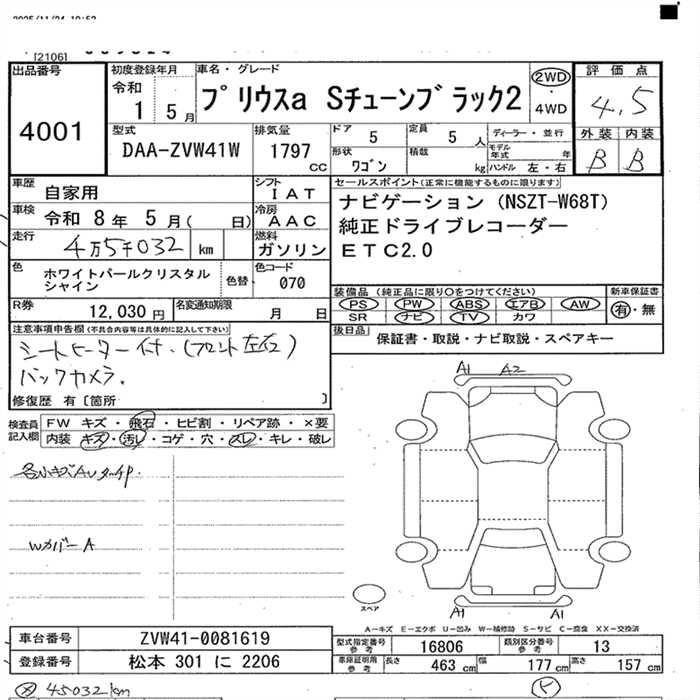 2025/11/24 10:53
[2106]
出品番号
4001
初度登録年月
令和
1 5月
車名・グレード
プリウスa Sチューンブラック2
2WD
・
4WD
評価点
4,5
外装 内装
B B
型式
DAA-ZVW41W
排気量
1797
CC
ドア
5
定員
5 人
ディーラー・並行
形状
ワゴン
積載
kg
モデル年式 年
ハンドル 左・右
車歴
自家用
シフト
IAT
車検
令和 8年 5月( 日)
冷房
AAC
走行
4万5千032 km
燃料
ガソリン
色
ホワイトパールクリスタル
シャイン
色替
色コード
070
R券
12,030 円
名変通知期限
月 日
セールスポイント(正常に機能するものに限ります)
ナビゲーション (NSZT-W68T)
純正ドライブレコーダー
ETC2.0
装備品 (純正品に限り○をつけてください)
PS PW ABS エアB AW
SR ナビ TV カワ
新車保証書
有・無
後日品
保証書・取説・ナビ取説・スペアキー
注意事項申告欄(不具合内容等は具体的に記入して下さい)
シートヒーター付.(フロント左右)
バックカメラ.
修復歴 有〔箇所 〕
検査員
記入欄
FW キズ・飛石・ヒビ割・リペア跡・×要
内装 キズ・汚レ・コゲ・穴・スレ・キレ・破レ
Wカバー A
A1 A2
A1 A1
スペア
A-キズ E-エクボ U-凹み W-補修跡 S-サビ C-腐食 XX-交換済
車台番号
ZVW41-0081619
登録番号
松本 301 に 2206
型式指定番号
参考
16806
類別区分番号
参考
13
車庫証明用
参考
長さ 463 cm 幅 177 cm 高さ 157 cm
45032km